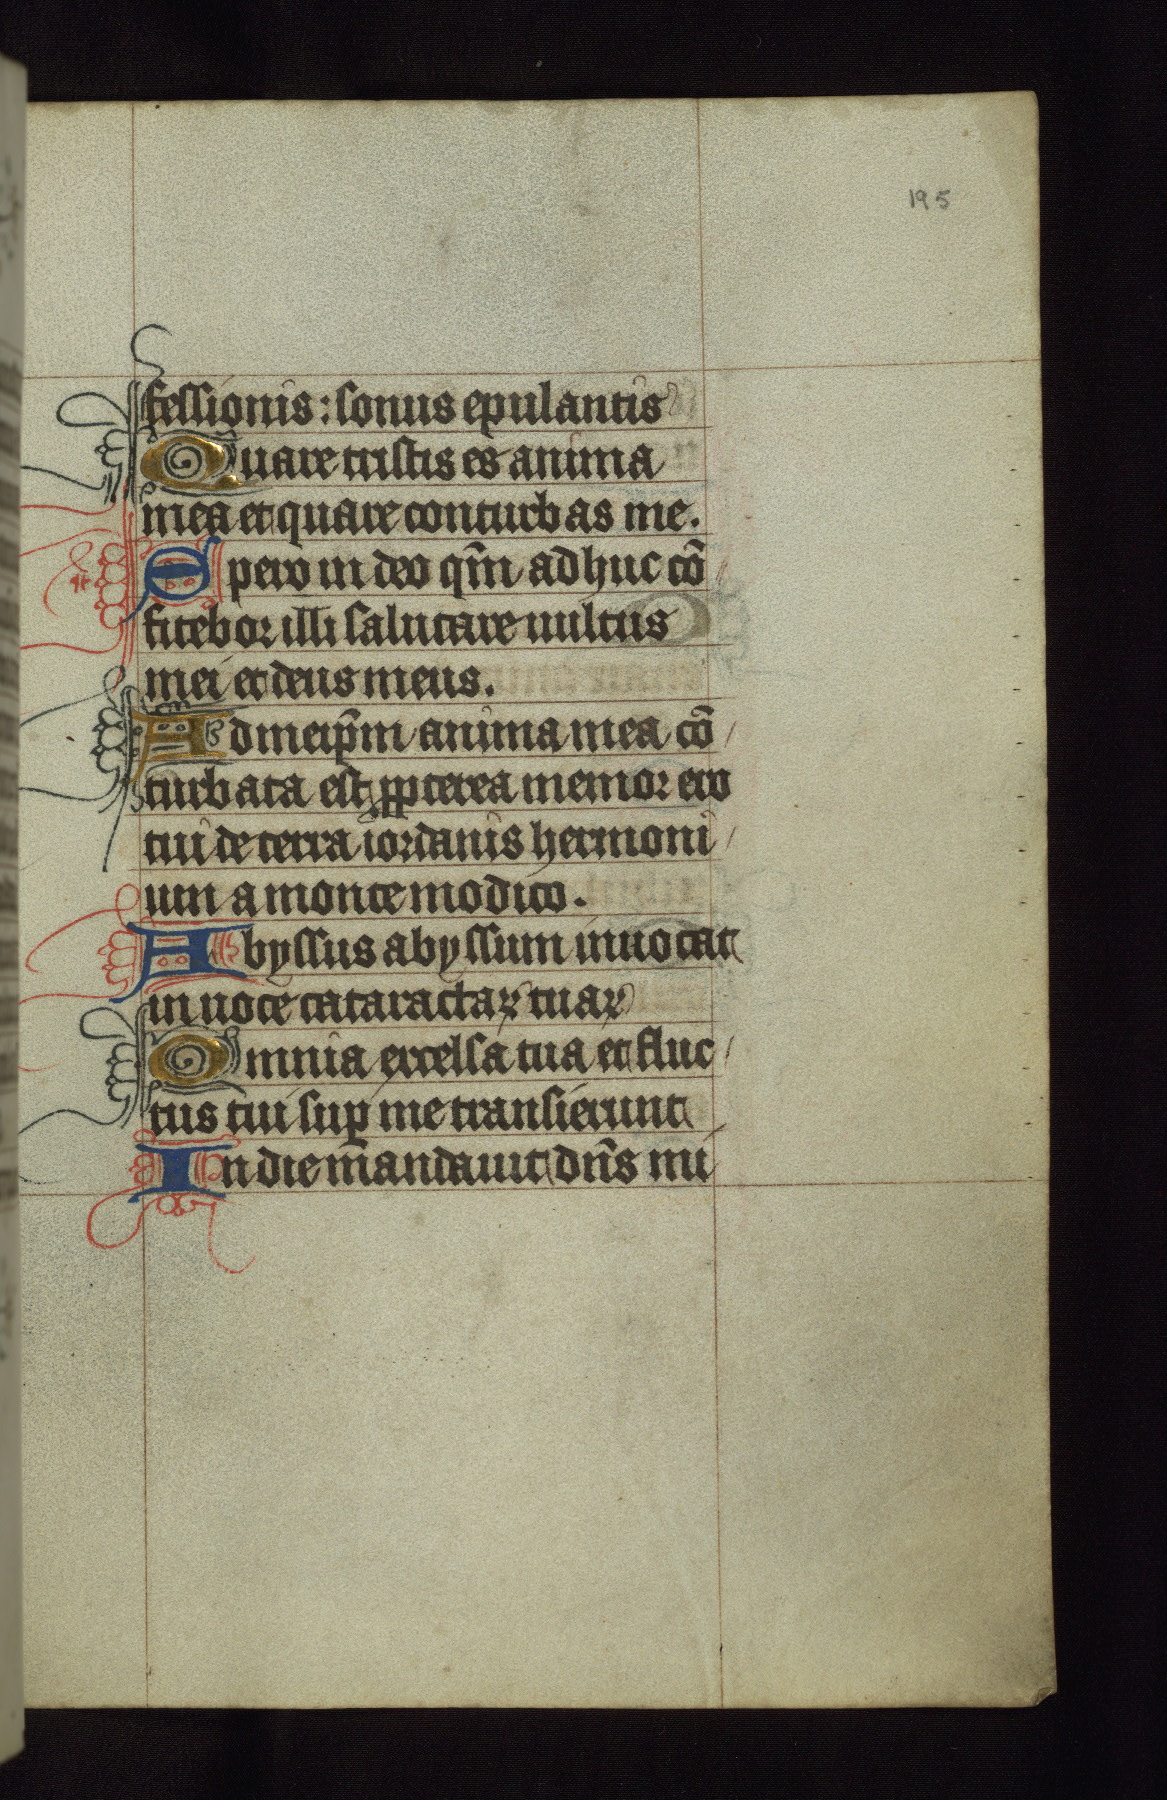 195
fessionis : sonus epulantis
Quare tristis es anima
mea et quare conturbas me.
Spero in deo qm̄ adhuc cō
fitebor illi salutare uultus
mei et deus meus.
Ad meip̄m anima mea cō
turbata est ꝓpterea memor ero
tui de terra iordanis hermoni
um a monte modico.
Abyssus abyssum inuocat
in uoce cataractaꝝ tuaꝝ
Omnia excelsa tua et fluc
tus tui suꝑ me transierunt
In die mandauit dn̄s mi